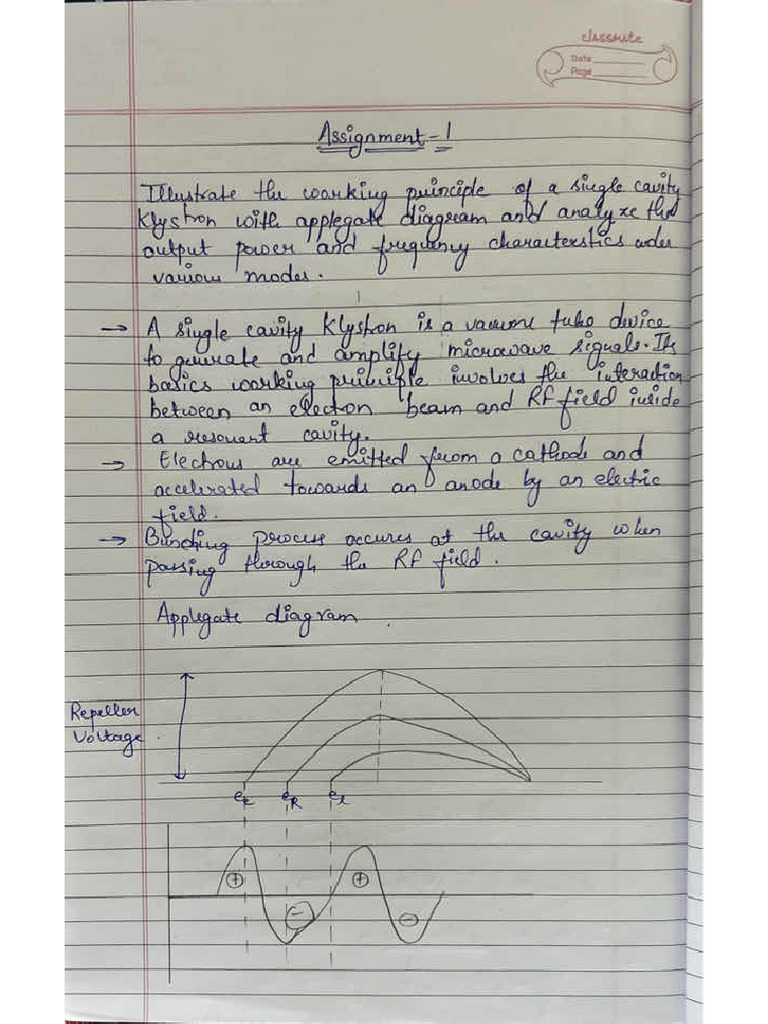 classmate
Date
Page
Assignment-1
Illustrate the working principle of a single cavity
Klystron with applegate diagram and analyze the
output power and frequency characteristics under
various modes.
1
→ A single cavity Klystron is a vacuum tube device
to generate and amplify microwave signals. Its
basics working principle involves the interaction
between an electon beam and RF field inside
a resonant cavity.
→ Electrons are emitted from a cathode and
accelerated towards an anode by an electric
field.
→ Bunching process occures at the cavity when
passing through the RF field.
Applegate diagram
Repeller
Voltage
eE eR el
+ - + -